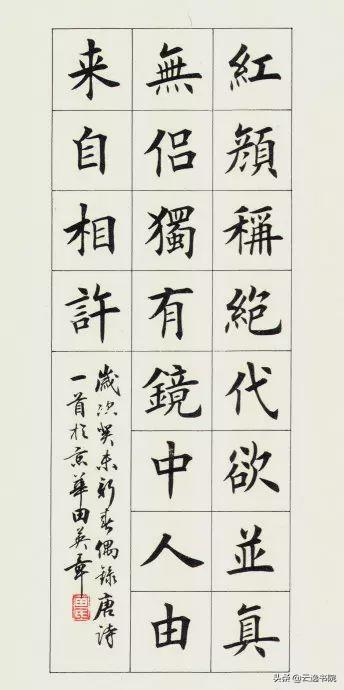 紅顔稱絶代欲並真
無侶獨有鏡中人由
来自相許
歲次癸未新春偶錄唐詩
一首於京華田英章
头条@云逸书院